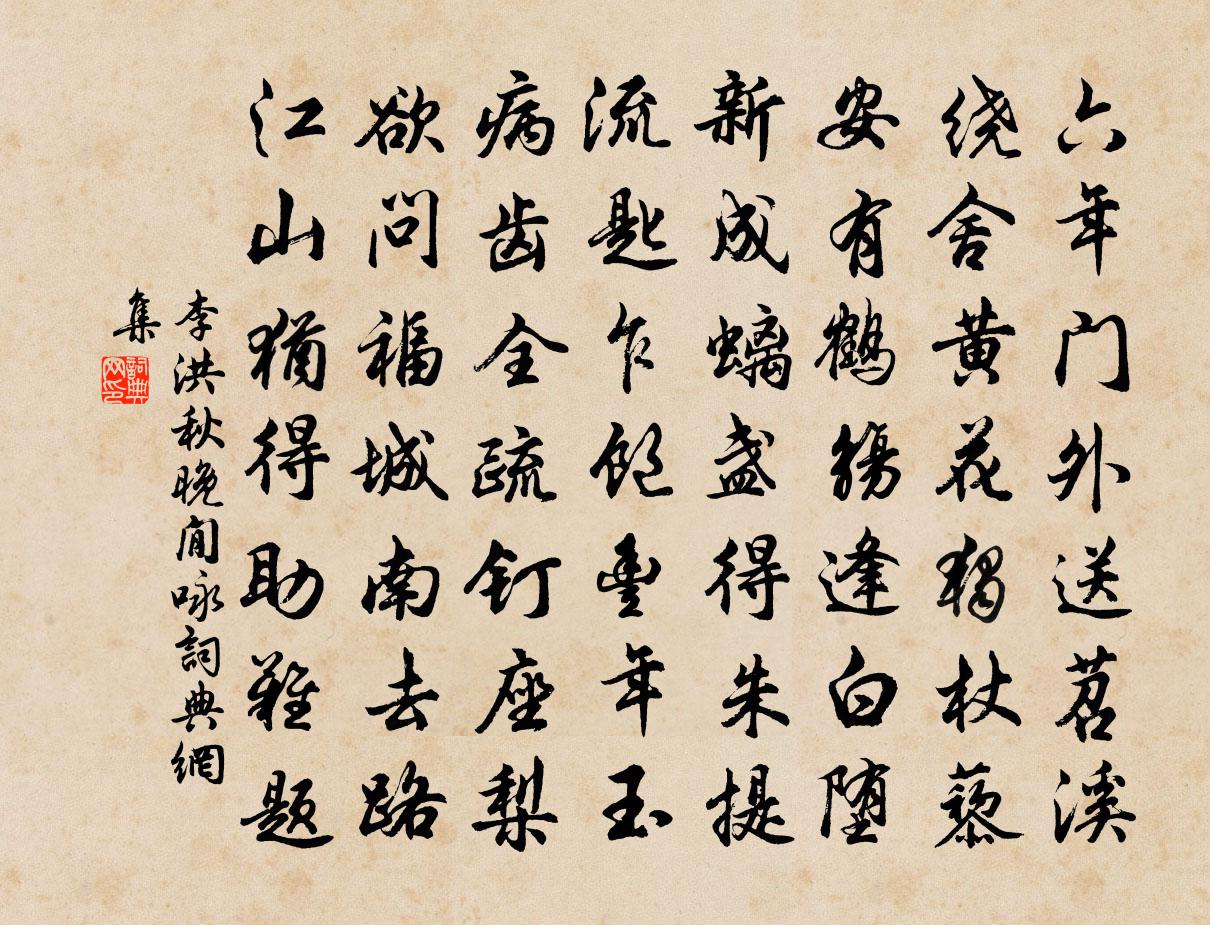 六年门外送苕溪
绕舍黄花独杖藜
安有鹤觞逢白堕
新成螭盏得朱提
流匙乍饤丰年玉
病齿全疏饤座梨
欲问福城南去路
江山犹得助难题
李洪秋晚闲咏詞典網
集
詞典
网印